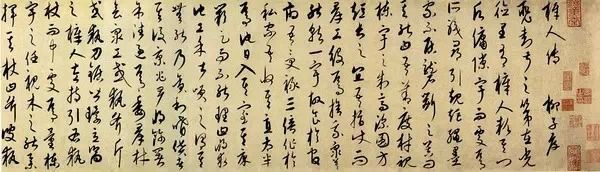 梓人傳 柳子厚
裴封叔之第在光
德里有梓人款其門
願傭隟宇而處焉
所職尋引規矩繩墨
家不居礱斲之器問
其能曰吾善度材視
棟宇之制高深圓方
短長之宜吾指使而
群工役焉捨我眾莫
能就一宇故食於官
府吾受祿三倍作於
私家吾收其直大半
焉他日入其室其床
闕足而不能理曰將求
他工余甚笑之謂其
無能而貪祿嗜貨者
其後京兆尹將飾官署
余往過焉委群材
會眾工或執斧斤
或執刀鋸皆環立嚮
之梓人左持引右執
杖而中處焉量棟
宇之任視木之能舉
揮其杖曰斧彼執